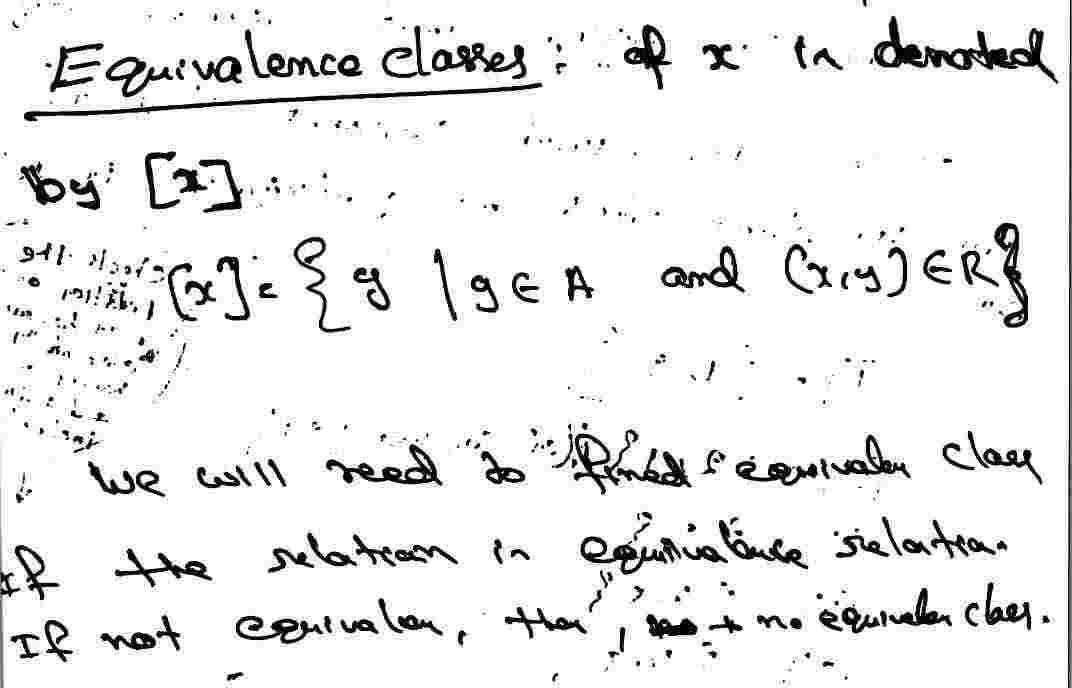 Equivalence classes : of x is denoted
by [x]
[x] = { y | y ∈ A and (x,y) ∈ R}
We will need to find equivalen class
If the relation is equivalence relation.
If not equivalen, then, no equivalen class.